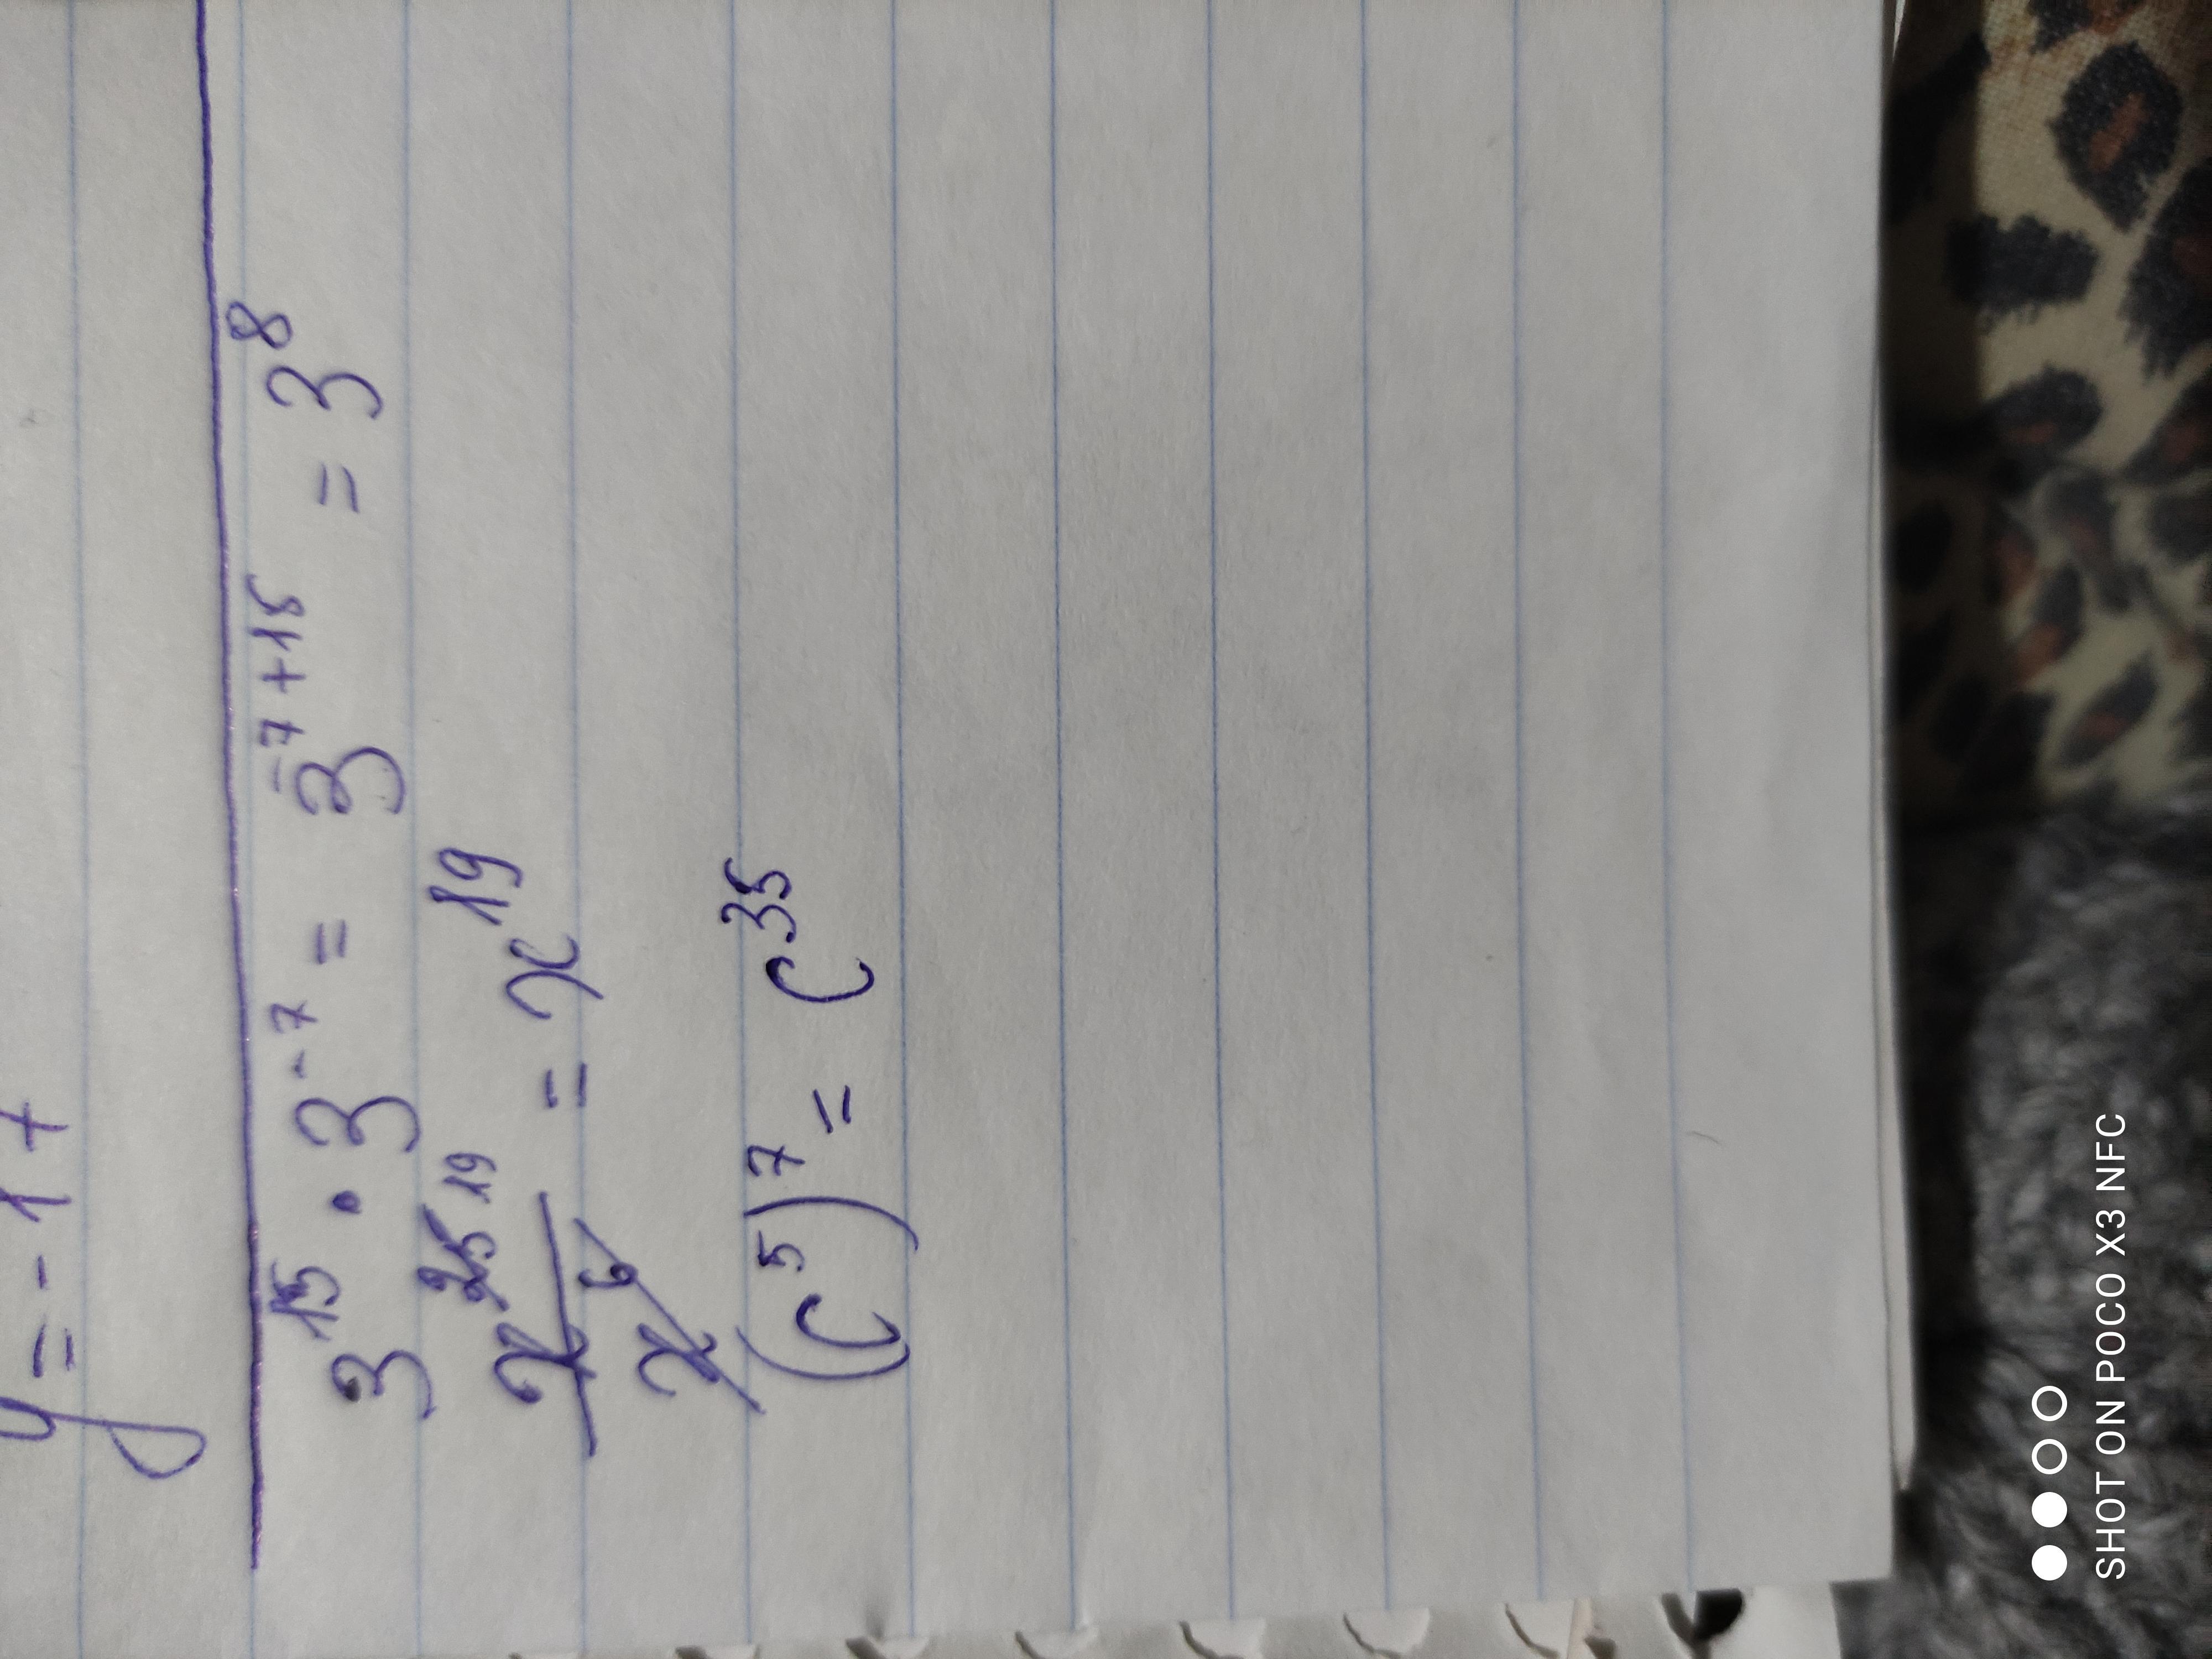 y = - 17
3¹⁵ · 3⁻⁷ = 3⁻⁷⁺¹⁵ = 3⁸
x²⁵ ¹⁹ / x⁶ = x¹⁹
(c⁵)⁷ = c³⁵
SHOT ON POCO X3 NFC